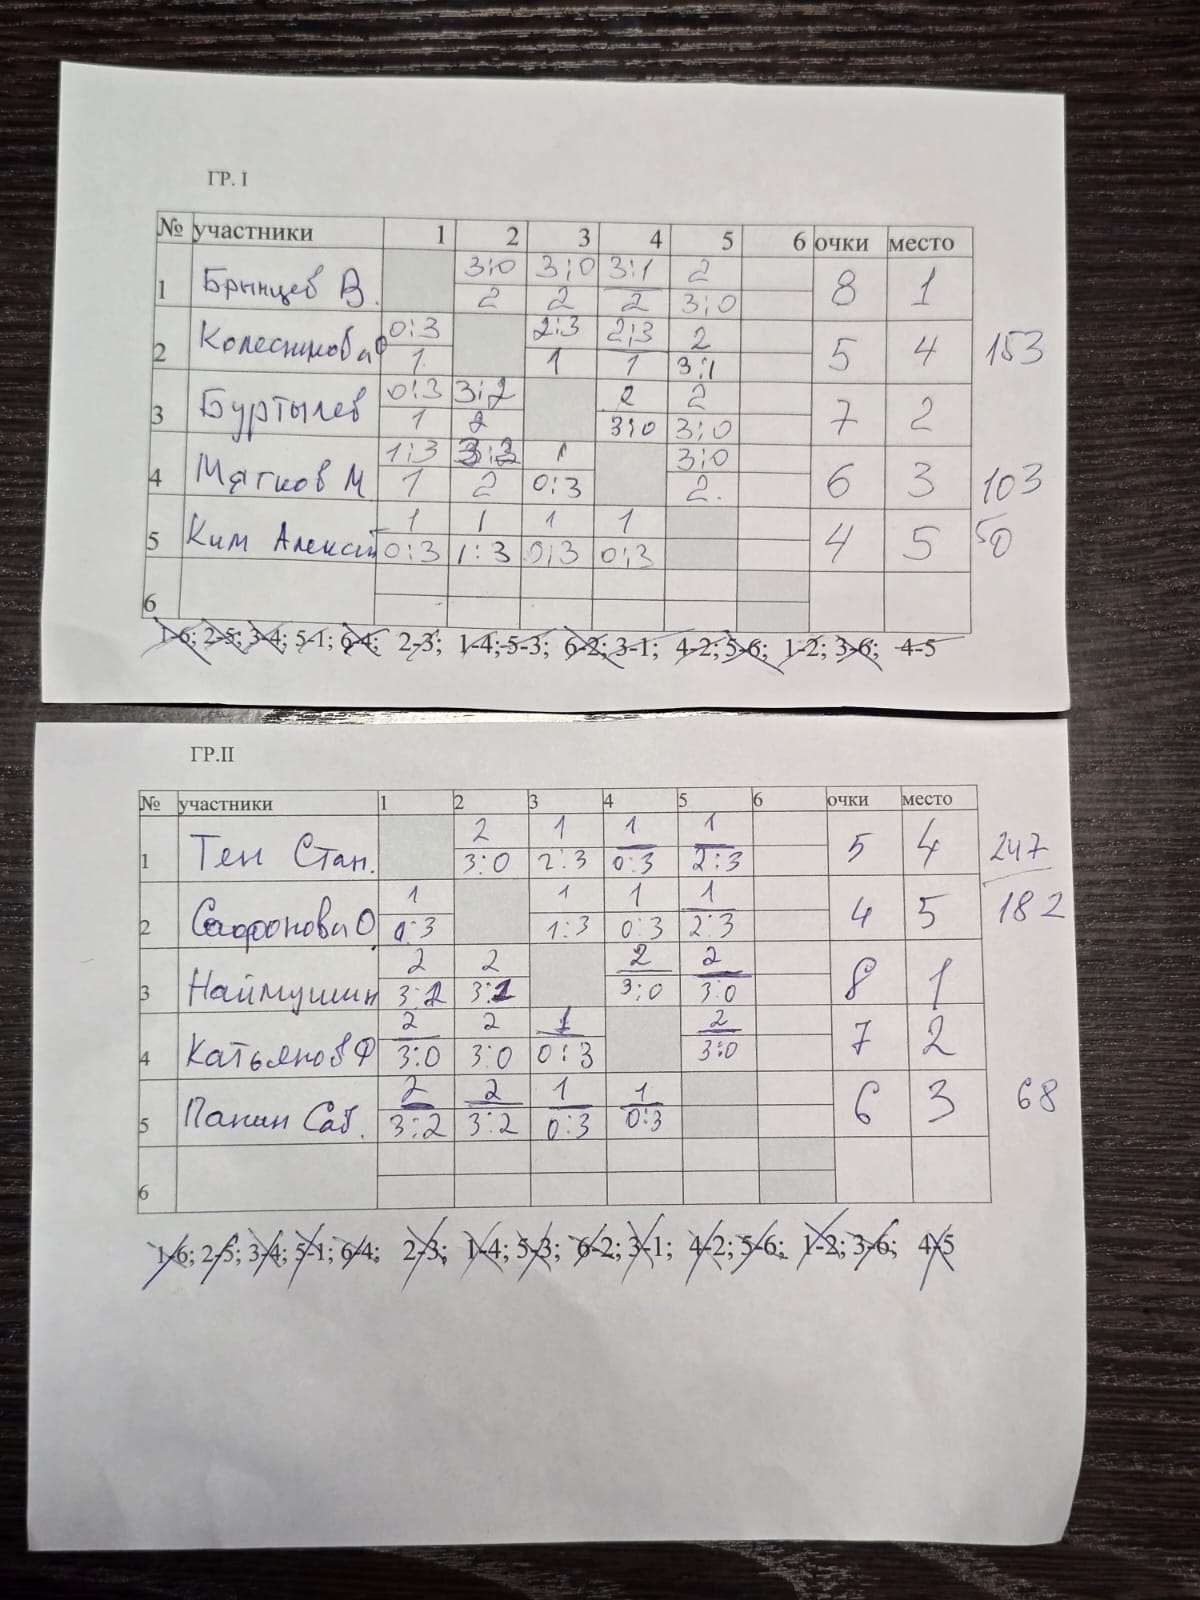 ГР. I
№ участники 1 2 3 4 5 6 очки место
3:0 3:0 3:1 2
1 Брынцев В. 2 2 2 3:0 8 1
0:3 2:3 2:3 2
2 Колесникова 1 1 1 3:1 5 4 153
0:3 3:2 2 2
3 Буртылев 1 2 3:0 3:0 7 2
1:3 3:2 1 3:0
4 Мягков М 1 2 0:3 2. 6 3 103
1 1 1 1
5 Ким Алексей 0:3 1:3 0:3 0:3 4 5 50
6
1-6; 2-5; 3-4; 5-1; 6-4; 2-3; 1-4; 5-3; 6-2; 3-1; 4-2; 5-6; 1-2; 3-6; 4-5
ГР.II
№ участники 1 2 3 4 5 6 очки место
2 1 1 1
1 Тен Стан. 3:0 2:3 0:3 2:3 5 4 247
1 1 1 1
2 Сафронова О 0:3 1:3 0:3 2:3 4 5 182
2 2 2 2
3 Наймушин 3:2 3:1 3:0 3:0 8 1
2 2 1 2
4 Катьянов Ф 3:0 3:0 0:3 3:0 7 2
2 2 1 1
5 Панин Сав. 3:2 3:2 0:3 0:3 6 3 68
6
1-6; 2-5; 3-4; 5-1; 6-4; 2-3; 1-4; 5-3; 6-2; 3-1; 4-2; 5-6; 1-2; 3-6; 4-5